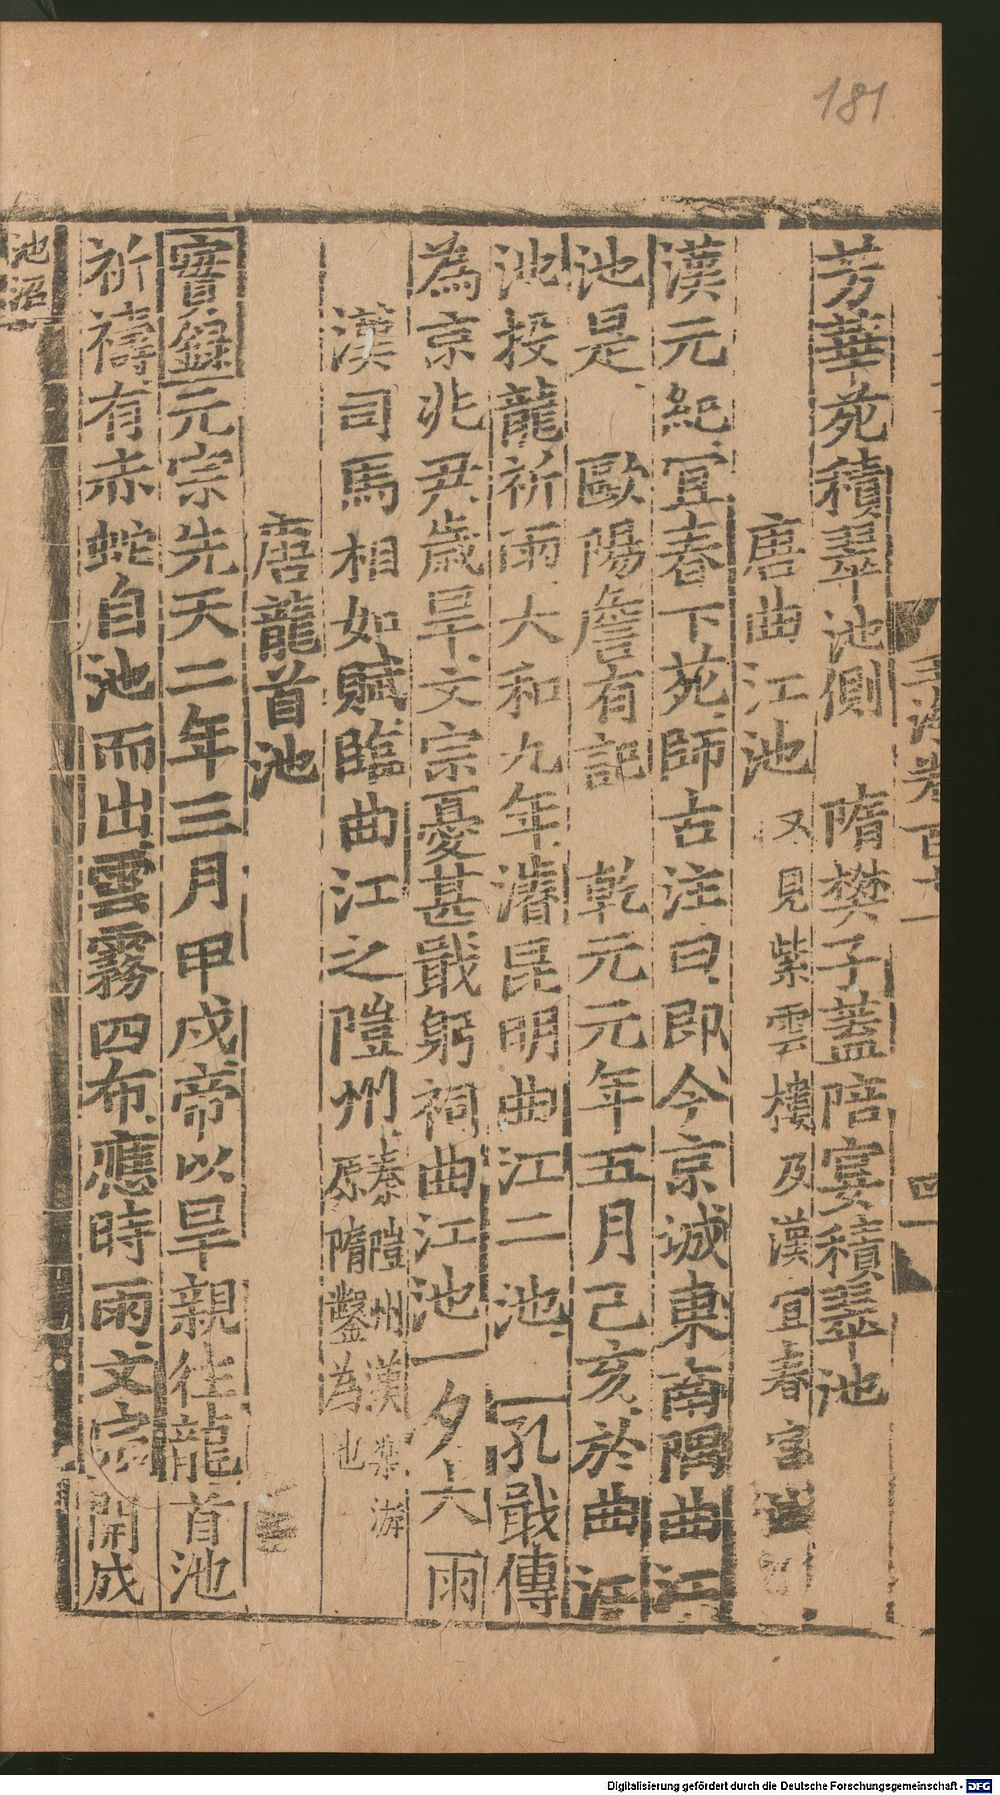 181
芳華苑積翠池側　隋樊子蓋陪宴積翠池
唐曲江池又見紫雲樓及漢宜春宮
漢元紀宜春下苑師古注曰即今京城東南隅曲江
池是　歐陽詹有記　乾元元年五月己亥於曲江
池投龍祈雨大和九年濬昆明曲江二池　孔戢傳
為京兆尹歲旱文宗憂甚戢躬祠曲江池一夕大雨
漢司馬相如賦臨曲江之隑州
秦隑州漢
原隋鑿為也
唐龍首池
實錄元宗先天二年三月甲戌帝以旱親往龍首池
祈禱有赤蛇自池而出雲霧四布應時雨文宗開成
池沼
Digitalisierung gefördert durch die Deutsche Forschungsgemeinschaft - DFG